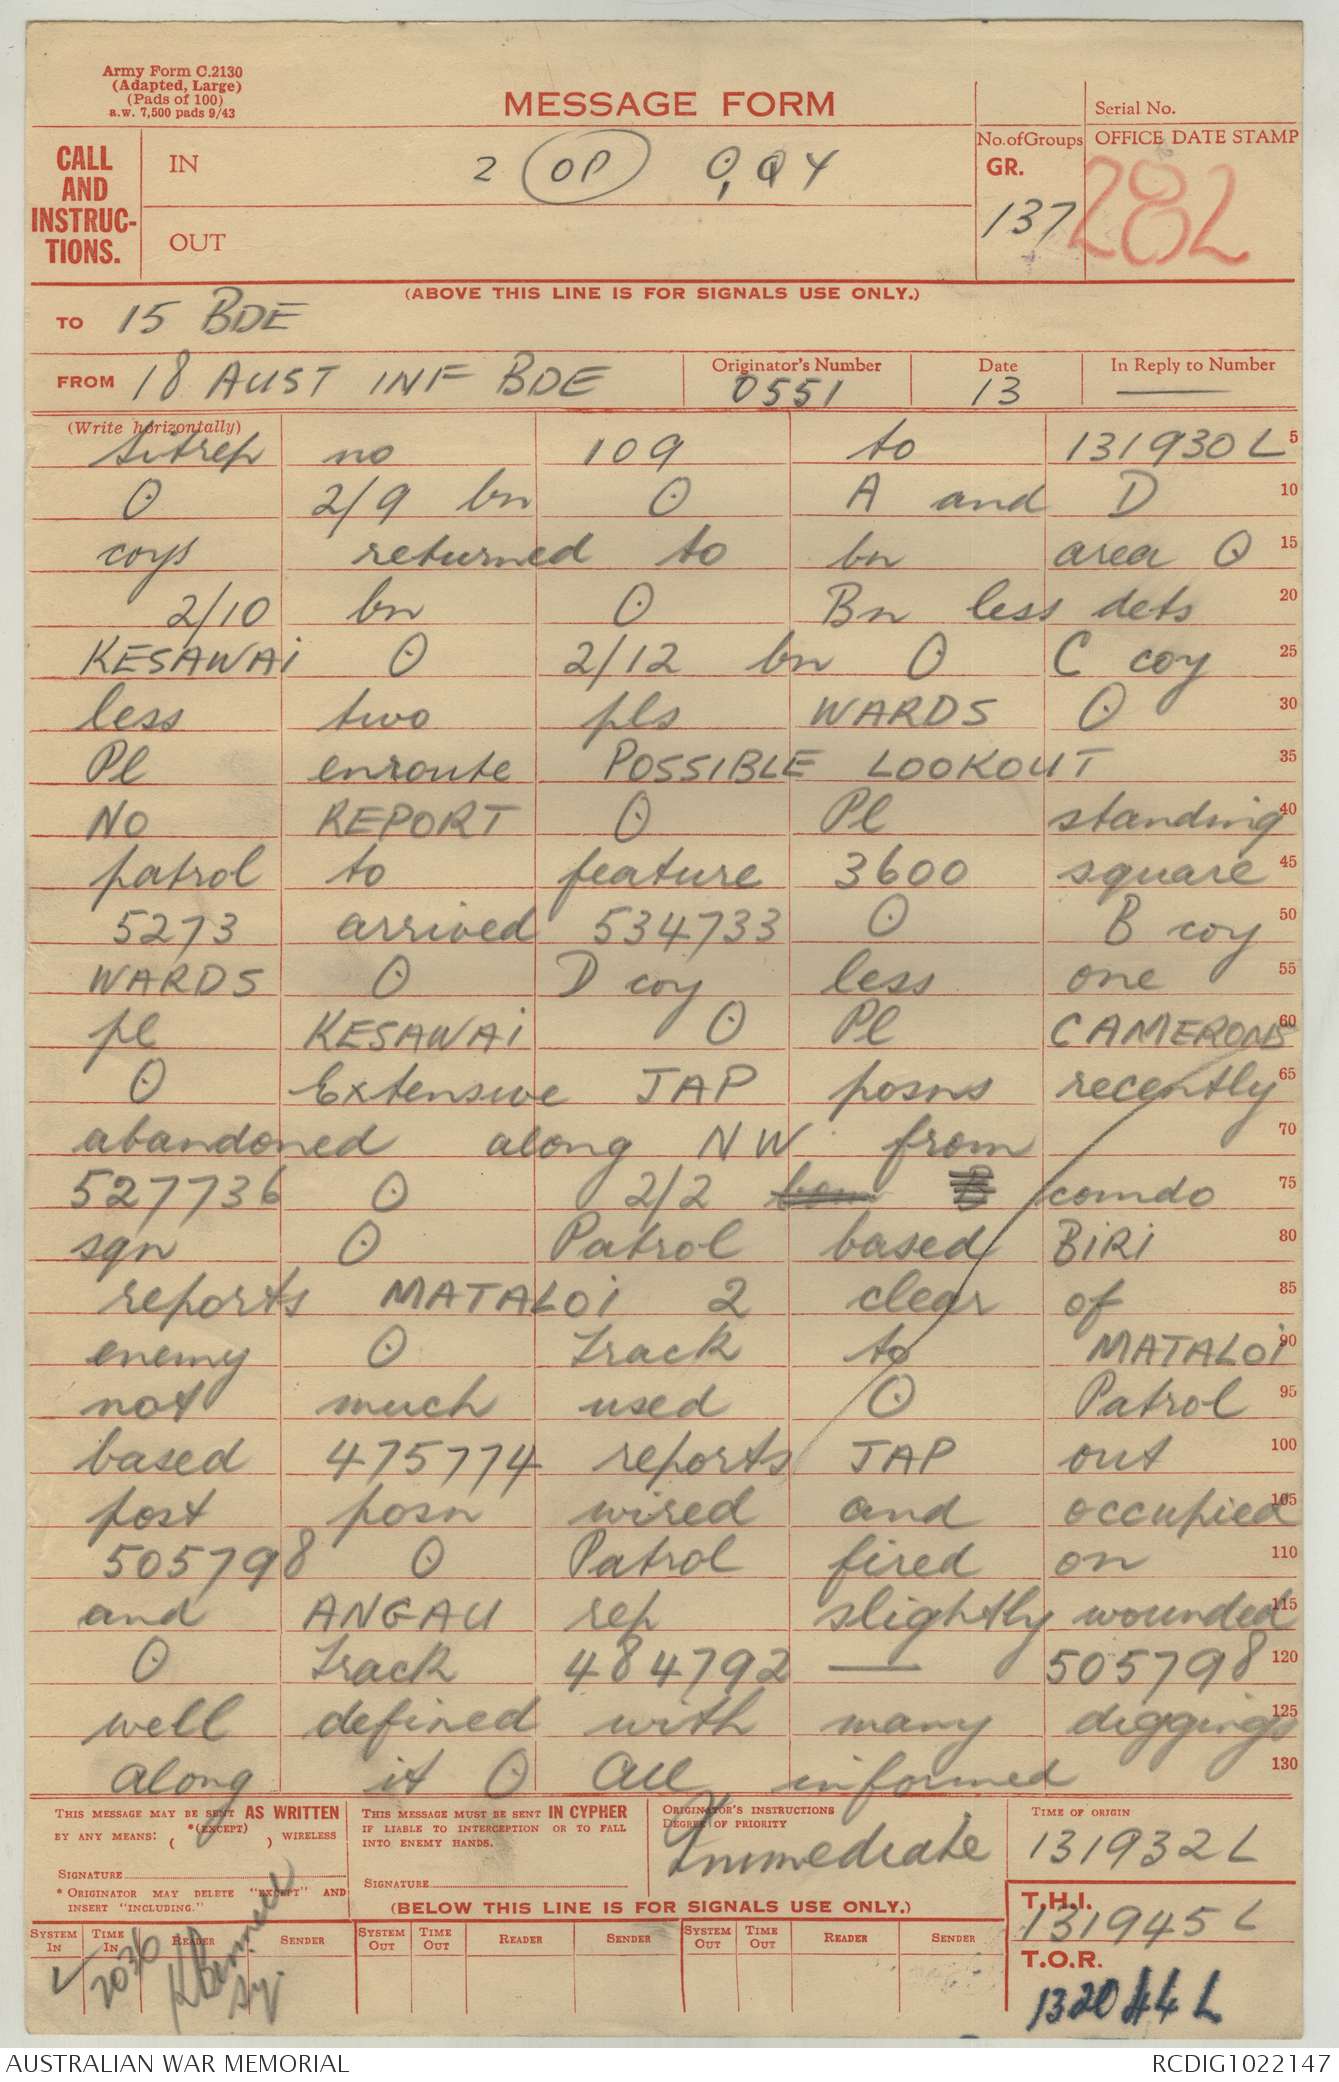 Army Form C.2130
(Adapted, Large)
(Pads of 100)
a.w. 7,500 pads 9/43
MESSAGE FORM
Serial No.
CALL AND INSTRUC- TIONS.
IN 2 (OP)
No. of Groups GR. 137
OFFICE DATE STAMP
282
OUT
(ABOVE THIS LINE IS FOR SIGNALS USE ONLY.)
TO 15 BDE
FROM 18 AUST INF BDE
Originator's Number 0551
Date 13
In Reply to Number —
(Write horizontally)
sitrep no 109 to 131930L 5
O 2/9 bn O A and D 10
coys returned to bn area O 15
2/10 bn O Bn less dets 20
KESAWAI O 2/12 bn O C coy 25
less two pls WARDS O 30
Pl enroute POSSIBLE LOOKOUT 35
NO REPORT O Pl standing 40
patrol to feature 3600 square 45
5273 arrived 534733 O B coy 50
WARDS O D coy less one 55
pl KESAWAI O Pl CAMERONS 60
O Extensive JAP posns recently 65
abandoned along NW from 70
527736 O 2/2 comdo 75
sqn O Patrol based BIRI 80
reports MATALOI 2 clear of 85
enemy O Track to MATALOI 90
not much used O Patrol 95
based 475774 reports JAP out 100
post posn wired and occupied 105
505798 O Patrol fired on 110
and ANGAU rep slightly wounded 115
O Track 484792 — 505798 120
well defined with many diggings 125
along it O All informed 130
THIS MESSAGE MAY BE SENT AS WRITTEN
BY ANY MEANS: *(EXCEPT) ( ) WIRELESS
SIGNATURE
* ORIGINATOR MAY DELETE "EXCEPT" AND
INSERT "INCLUDING."
THIS MESSAGE MUST BE SENT IN CYPHER
IF LIABLE TO INTERCEPTION OR TO FALL
INTO ENEMY HANDS.
SIGNATURE
ORIGINATOR'S INSTRUCTIONS
DEGREE OF PRIORITY
Immediate
TIME OF ORIGIN
131932L
(BELOW THIS LINE IS FOR SIGNALS USE ONLY.)
T.H.I.
131945L
T.O.R.
132044L
SYSTEM IN TIME IN READER SENDER SYSTEM OUT TIME OUT READER SENDER SYSTEM OUT TIME OUT READER SENDER
2036
AUSTRALIAN WAR MEMORIAL
RCDIG1022147